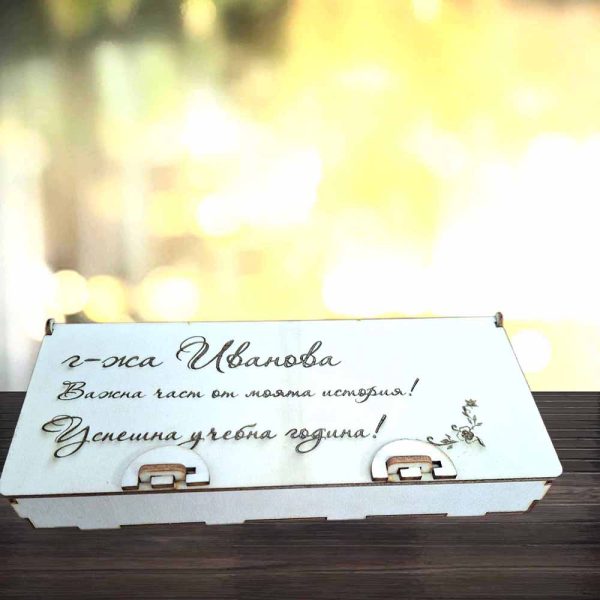 г-жа Иванова
Важна част от моята история!
Успешна учебна година!